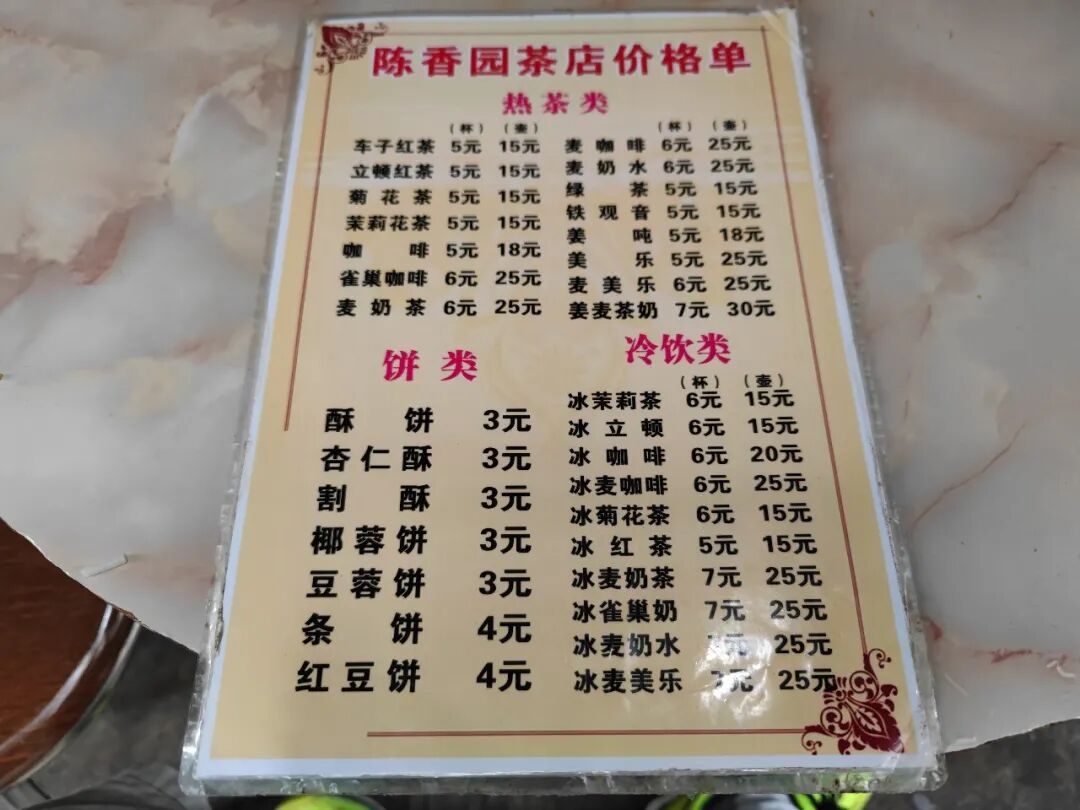 陈香园茶店价格单
热茶类
（杯）（壶）
车子红茶 5元 15元
立顿红茶 5元 15元
菊花茶 5元 15元
茉莉花茶 5元 15元
咖啡 5元 18元
雀巢咖啡 6元 25元
麦奶茶 6元 25元
（杯）（壶）
麦咖啡 6元 25元
麦奶水 6元 25元
绿茶 5元 15元
铁观音 5元 15元
姜吨 5元 18元
美乐 5元 25元
麦美乐 6元 25元
姜麦茶奶 7元 30元
饼类
酥饼 3元
杏仁酥 3元
割酥 3元
椰蓉饼 3元
豆蓉饼 3元
条饼 4元
红豆饼 4元
冷饮类
（杯）（壶）
冰茉莉茶 6元 15元
冰立顿 6元 15元
冰咖啡 6元 20元
冰麦咖啡 6元 25元
冰菊花茶 6元 15元
冰红茶 5元 15元
冰麦奶茶 7元 25元
冰雀巢奶 7元 25元
冰麦奶水 7元 25元
冰麦美乐 7元 25元